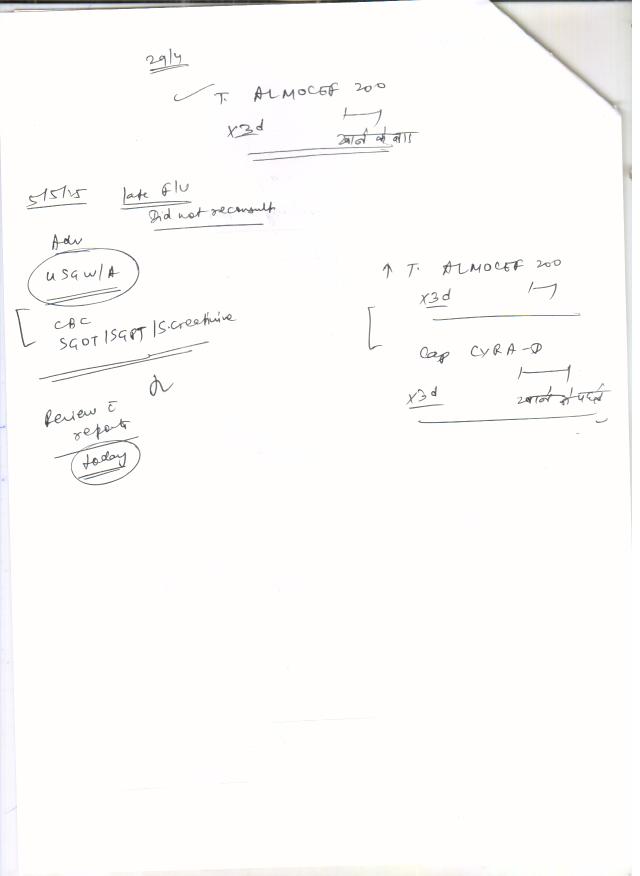 29/4
✓ T. ALMOCEF 200
x3d खाने के बाद
5/5/25 late F/U
Did not reconsult
Adv
USG W/A
CBC
SGOT/SGPT/S.Creatinine
Review c̄
reports
today
↑ T. ALMOCEF 200
x3d
Cap CYRA-D
x3d खाने से पहले